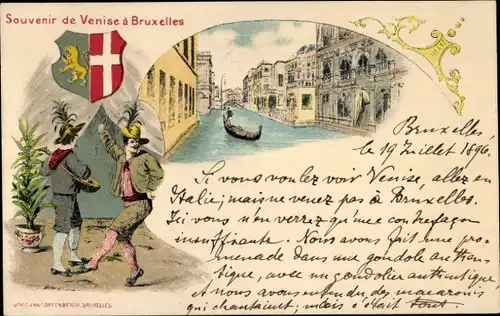 Souvenir de Venise à Bruxelles
Bruxelles
le 19 Juillet 1896.
Si vous voulez voir Venise, allez en
Italie; mais ne venez pas à Bruxelles.
Ici vous n'en verrez qu'une contrefaçon
insuffisante. Nous avons fait une pro-
menade dans une gondole authen-
tique, avec un gondolier authentique
et nous avons entendu des macaronis
qui chantaient; mais c'était tout.
BRUXELLES